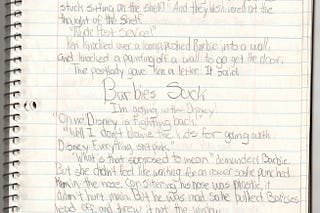 stuck sitting on the shelf!" And they both shivered at the
thought of the shelf.
"Rude Post Service!"
Ken knocked over a lamp, pushed Barbie into a wall,
and knocked a painting off a wall to go get the door.
The postlady gave him a letter. It said:
Barbies Suck
I'm going with Disney!
"Oh no! Disney is fighting back!"
"Well I don't blame the kids for going with
Disney. Everything
"What is that supposed to mean" demanded Barbie.
But she didn't feel like waiting for an answer so she punched
him in the nose. Considering his nose was plastic, it
didn't hurt much. But he was mad so he pulled Barbie's
head off and threw it out the window.